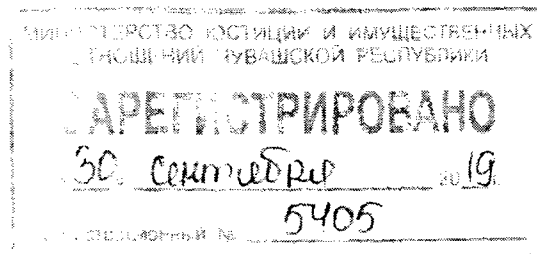 МИНИСТЕРСТВО ЮСТИЦИИ И ИМУЩЕСТВЕННЫХ
ОТНОШЕНИЙ ЧУВАШСКОЙ РЕСПУБЛИКИ
ЗАРЕГИСТРИРОВАНО
30 сентября 2019
№ 5405